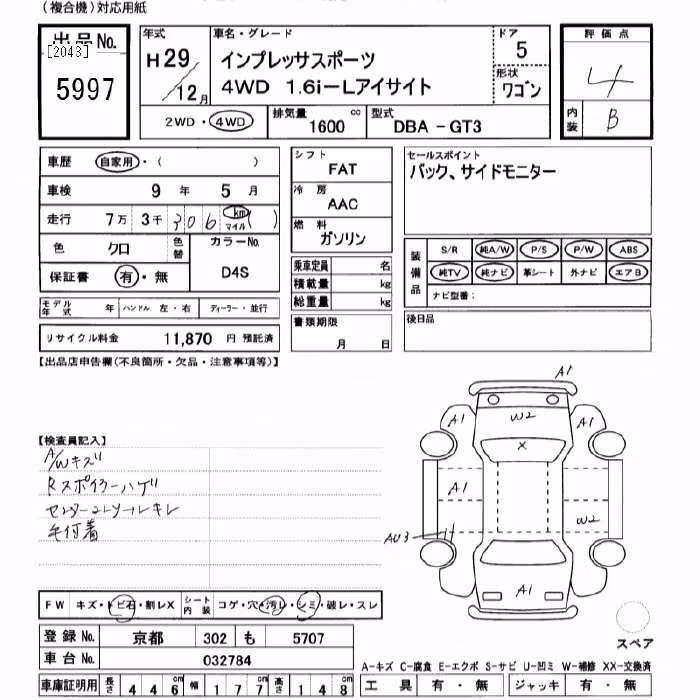 (複合機)対応用紙
出品No.
[2043]
5997
年式
H29
12月
車名・グレード
インプレッサスポーツ
4WD 1.6i-Lアイサイト
ドア
5
形状
ワゴン
評価点
4
内装
B
2WD・4WD
排気量
1600 cc
型式
DBA-GT3
車歴 自家用・( )
車検 9年 5月
走行 7万 3千 306 km マイル ( )
色 クロ
色替
カラーNo.
D4S
保証書 有・無
モデル年式 年
ハンドル 左・右
ディーラー・並行
リサイクル料金 11,870 円 預託済
シフト
FAT
冷房
AAC
燃料
ガソリン
乗車定員 名
積載量 kg
総重量 kg
書類期限
月 日
セールスポイント
バック、サイドモニター
装備品
S/R 純A/W P/S P/W ABS
純TV 純ナビ 革シート 外ナビ エアB
ナビ型番:
後日品
【出品店申告欄(不良箇所・欠品・注意事項等)】
【検査員記入】
A/Wキズ
Rスポイラーハゲ
毛付着
A1
A1
W2
A1
X
A1
W2
AU3
A1
FW キズ・トビ石・割レX
シート内装 コゲ・穴・汚レ・シミ・破レ・スレ
登録No. 京都 302 も 5707
車台No. 032784
車庫証明用 長さ 446cm 幅 177cm 高さ 148cm
スペア
A-キズ C-腐食 E-エクボ S-サビ U-凹ミ W-補修 XX-交換済
工具 有・無 ジャッキ 有・無